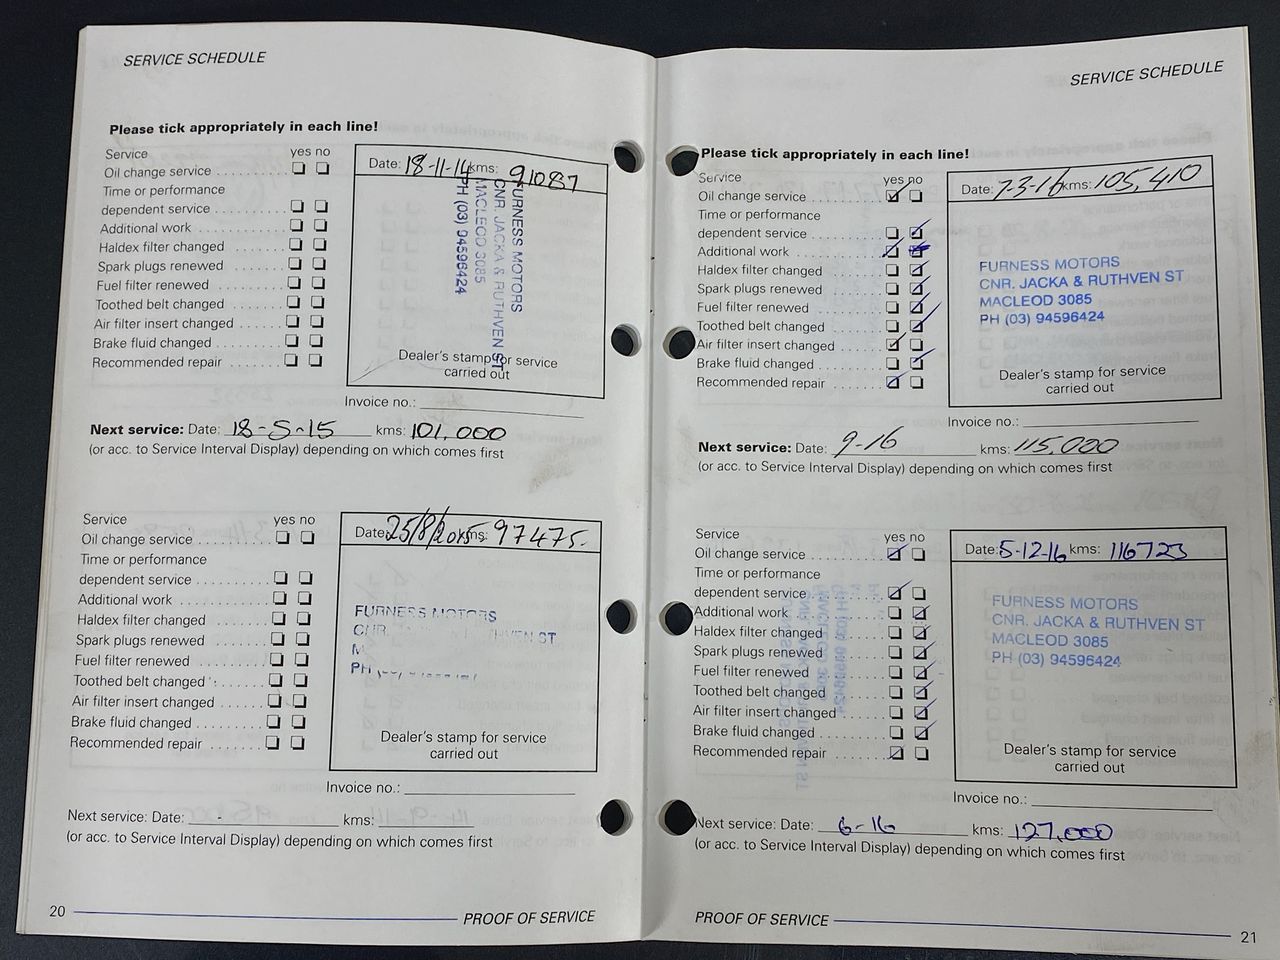 SERVICE SCHEDULE
Please tick appropriately in each line!
Service yes no
Oil change service
Time or performance
dependent service
Additional work
Haldex filter changed
Spark plugs renewed
Fuel filter renewed
Toothed belt changed
Air filter insert changed
Brake fluid changed
Recommended repair
Date: 18-11-14 kms: 91087
FURNESS MOTORS
CNR. JACKA & RUTHVEN ST
MACLEOD 3085
PH (03) 94596424
Dealer's stamp for service
carried out
Invoice no.:
Next service: Date: 18-5-15 kms: 101,000
(or acc. to Service Interval Display) depending on which comes first
Service yes no
Oil change service
Time or performance
dependent service
Additional work
Haldex filter changed
Spark plugs renewed
Fuel filter renewed
Toothed belt changed
Air filter insert changed
Brake fluid changed
Recommended repair
Date: 25/8/2015 kms: 97475.
FURNESS MOTORS
CNR. THVEN ST
PH
Dealer's stamp for service
carried out
Invoice no.:
Next service: Date: - kms:
(or acc. to Service Interval Display) depending on which comes first
20 PROOF OF SERVICE
SERVICE SCHEDULE
Please tick appropriately in each line!
Service yes no
Oil change service
Time or performance
dependent service
Additional work
Haldex filter changed
Spark plugs renewed
Fuel filter renewed
Toothed belt changed
Air filter insert changed
Brake fluid changed
Recommended repair
Date: 7-3-16 kms: 105,410
FURNESS MOTORS
CNR. JACKA & RUTHVEN ST
MACLEOD 3085
PH (03) 94596424
Dealer's stamp for service
carried out
Invoice no.:
Next service: Date: 9-16 kms: 115,000
(or acc. to Service Interval Display) depending on which comes first
Service yes no
Oil change service
Time or performance
dependent service
Additional work
Haldex filter changed
Spark plugs renewed
Fuel filter renewed
Toothed belt changed
Air filter insert changed
Brake fluid changed
Recommended repair
Date: 5-12-16 kms: 116723
FURNESS MOTORS
CNR. JACKA & RUTHVEN ST
MACLEOD 3085
PH (03) 94596424
Dealer's stamp for service
carried out
Invoice no.:
Next service: Date: 6-16 kms: 127,000
(or acc. to Service Interval Display) depending on which comes first
PROOF OF SERVICE 21